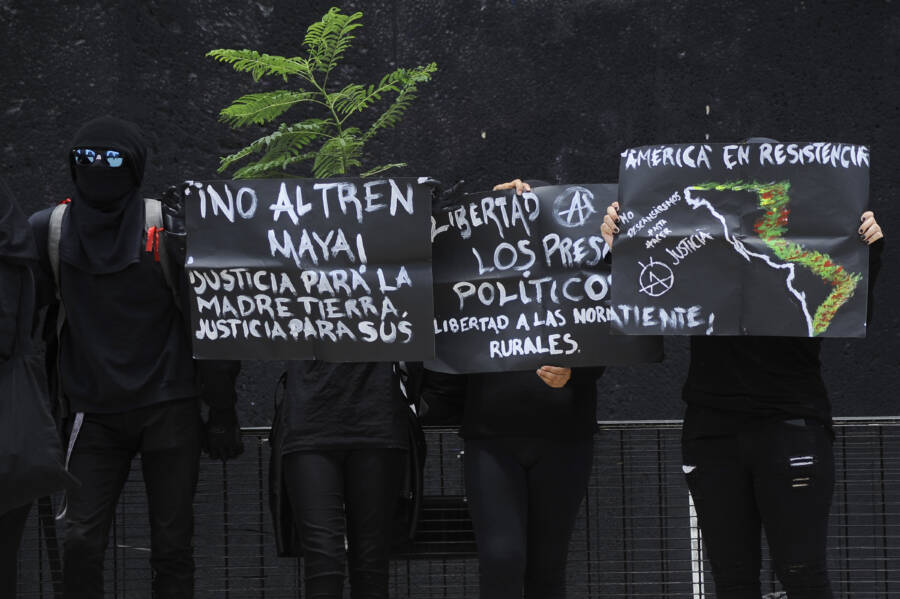 ¡NO AL TREN
MAYA!
JUSTICIA PARA LA
MADRE TIERRA,
JUSTICIA PARA SUS
LIBERTAD
LOS PRES
POLÍTICO
LIBERTAD A LAS NORM
RURALES.
"AMÉRICA" EN RESISTENCIA
NO
DESCANSAREMOS
HASTA
HACER
JUSTICIA
TIENTE!